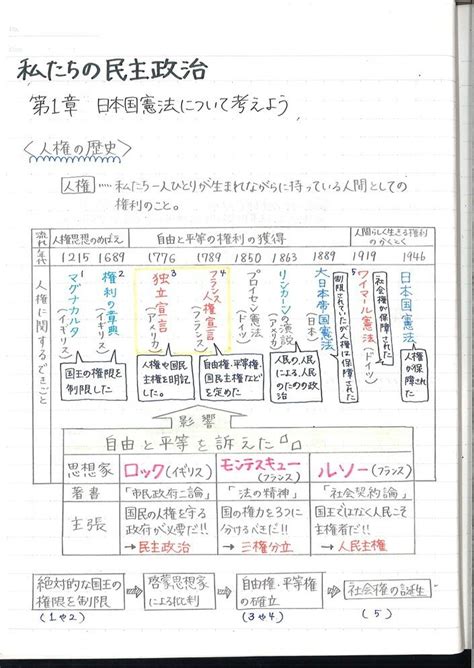 私たちの民主政治
第1章 日本国憲法について考えよう
〈人権の歴史〉
人権……私たち一人ひとりが生まれながらに持っている人間としての
権利のこと。
流れ 人権思想のめばえ 自由と平等の権利の獲得 人間らしく生きる権利のかくとく
年代 1215 1689 1776 1789 1850 1863 1889 1919 1946
人権に関するできごと
マグナカルタ(イギリス) 1
権利の章典(イギリス) 2
独立宣言(アメリカ) 3
フランス人権宣言(フランス) 4
プロイセン憲法(ドイツ)
リンカーンの演説(アメリカ)
大日本帝国憲法(日本)
ワイマール憲法(ドイツ) 5
日本国憲法
国王の権限を
制限した
人権や国民
主権を明記
した。
自由権・平等権・
国民主権などを
定めた
人民の、人民に
よる、人民の
ための政治
制限されていたが人権は保障された
社会権が保障された
人権が
保障された
影響
自由と平等を訴えた
思想家 ロック(イギリス) モンテスキュー(フランス) ルソー(フランス)
著書 「市民政府二論」 「法の精神」 「社会契約論」
主張 国民の人権を守る 国の権力を3つに 国王ではなく人民こそ
政府が必要だ!! 分けるべきだ!! 主権者だ!!
→民主政治 →三権分立 →人民主権
絶対的な国王の 啓蒙思想家 自由権・平等権 社会権の誕生
権限を制限 による批判 の確立
(1や2) (3や4) (5)